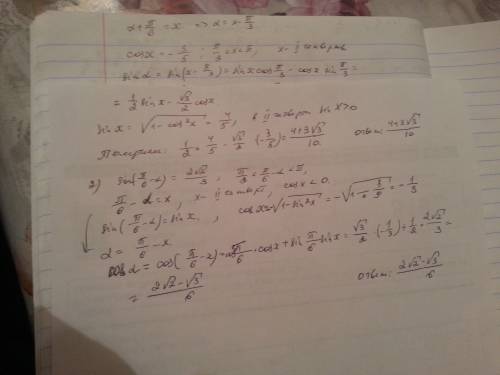 α+π/3 = x => α = x - π/3
cos x = -3/5 ; π/3 < x < π, x -
sin α = sin(x - π/3) = sin x cos π/3 - cos x sin π/3 =
= 1/2 sin x - √3/2 cos x
sin x = √(1-cos²x) = 4/5, в II четверт sin x > 0
Получаем: 1/2 · 4/5 - √3/2 · (-3/5) = (4+3√3)/10 ответ: (4+3√3)/10
2) sin(π/6 - α) = 2√2/3,
π/6 - α = x, x - II четверт, cos x < 0.
sin(π/6 - α) = sin x, cos x = -√(1-sin²x) = -√(1-8/9) = -1/3
α = π/6 - x
cos α = cos(π/6 - x) = cos π/6 · cos x + sin π/6 sin x = √3/2 · (-1/3) + 1/2 · 2√2/3 =
= (2√2-√3)/6 ответ: (2√2-√3)/6